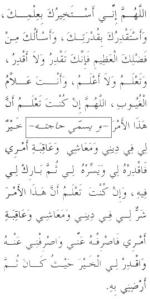 اللَّهُمَّ إِنِّي أَسْتَخِيرُكَ بِعِلْمِكَ،
وَأَسْتَقْدِرُكَ بِقُدْرَتِكَ، وَأَسْأَلُكَ مِنْ
فَضْلِكَ الْعَظِيمِ فَإِنَّكَ تَقْدِرُ وَلَا أَقْدِرُ،
وَتَعْلَمُ وَلَا أَعْلَمُ، وَأَنْتَ عَلَّامُ
الْغُيُوبِ، اللَّهُمَّ إِنْ كُنْتَ تَعْلَمُ أَنَّ
هَذَا الْأَمْرَ -و يسمي حاجته- خَيْرٌ
لِي فِي دِينِي وَمَعَاشِي وَعَاقِبَةِ أَمْرِي
فَاقْدُرْهُ لِي وَيَسِّرْهُ لِي ثُمَّ بَارِكْ لِي
فِيهِ، وَإِنْ كُنْتَ تَعْلَمُ أَنَّ هَذَا الْأَمْرَ
شَرٌّ لِي فِي دِينِي وَمَعَاشِي وَعَاقِبَةِ
أَمْرِي فَاصْرِفْهُ عَنِّي وَاصْرِفْنِي عَنْهُ
وَاقْدُرْ لِيَ الْخَيْرَ حَيْثُ كَانَ ثُمَّ
أَرْضِنِي بِهِ.